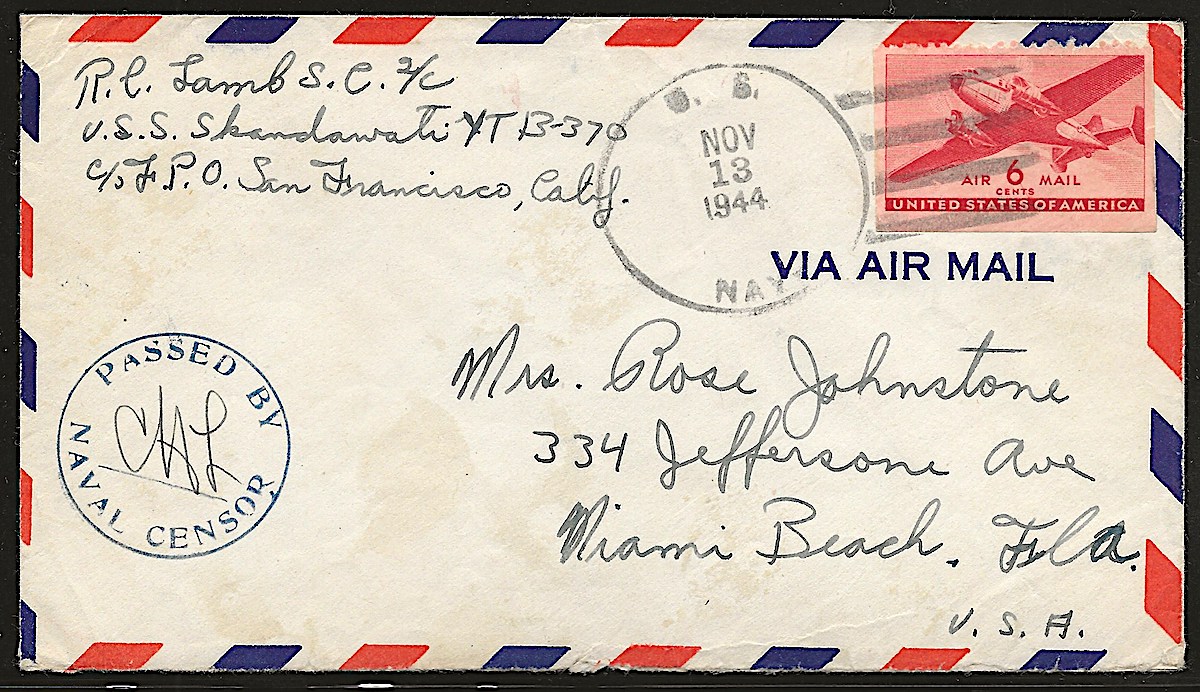 R. C. Lamb S. C. 2/c
U.S.S. Skandawati YTB-370
c/o F.P.O. San Francisco, Calif.
U. S.
NOV
13
1944
NAVY
AIR 6 MAIL
CENTS
UNITED STATES OF AMERICA
VIA AIR MAIL
PASSED BY
NAVAL CENSOR
CHL
Mrs. Rose Johnstone
334 Jeffersone Ave
Miami Beach. Fla.
U. S. A.